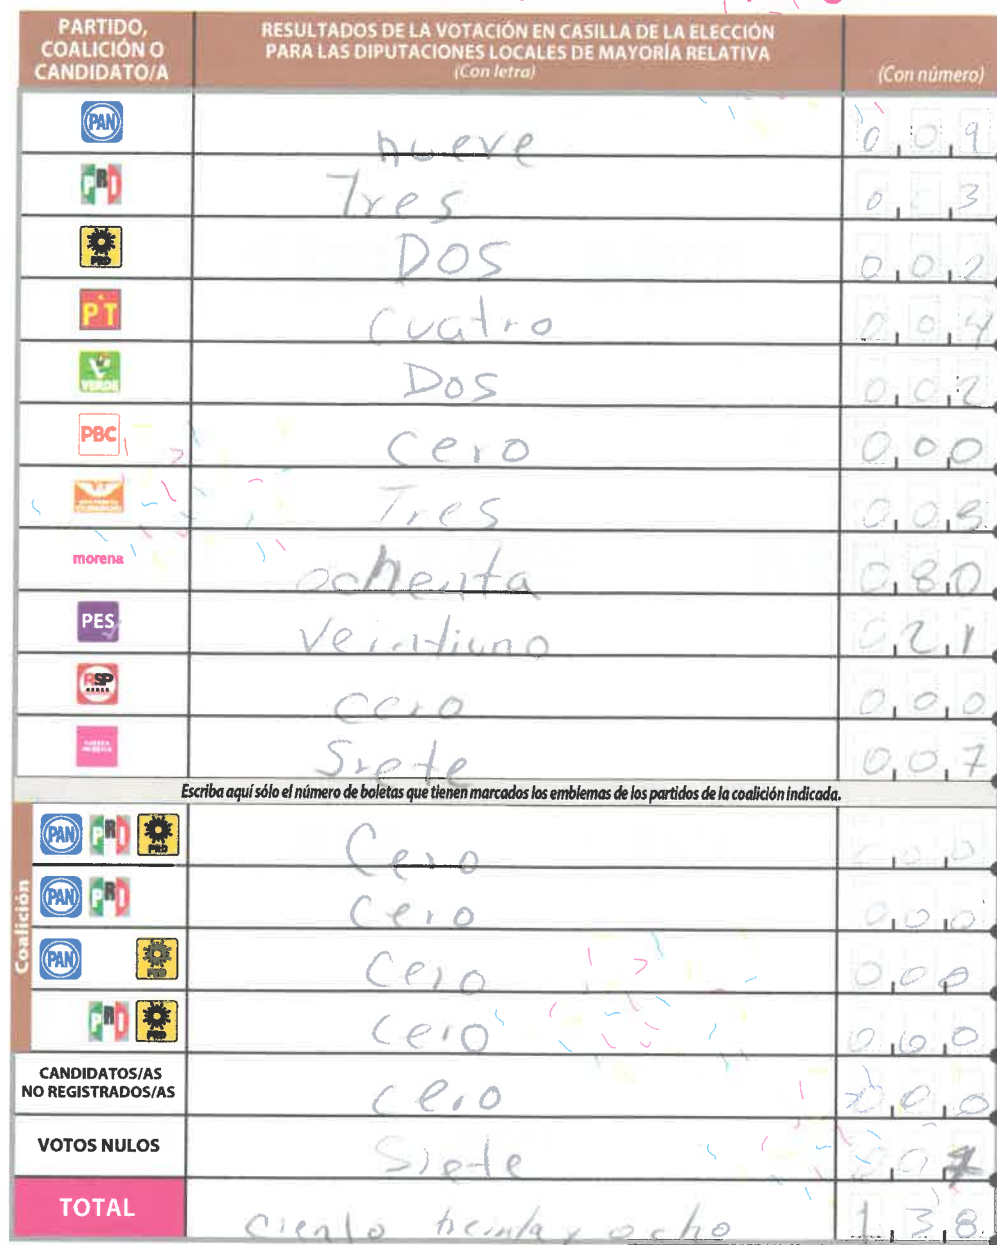 PARTIDO, COALICIÓN O CANDIDATO/A
RESULTADOS DE LA VOTACIÓN EN CASILLA DE LA ELECCIÓN PARA LAS DIPUTACIONES LOCALES DE MAYORÍA RELATIVA
(Con letra)
(Con número)
PAN nueve 009
PRI Tres 0 3
PRD DOS 002
PT cuatro 004
VERDE Dos 002
PBC cero 000
Tres 003
morena ochenta 080
PES veintiuno 021
RSP cero 000
Siete 007
Escriba aquí sólo el número de boletas que tienen marcados los emblemas de los partidos de la coalición indicada.
Coalición
PAN PRI PRD Cero 000
PAN PRI Cero 000
PAN PRD Cero 000
PRI PRD Cero 000
CANDIDATOS/AS NO REGISTRADOS/AS cero 000
VOTOS NULOS Siete 007
TOTAL ciento treinta y ocho 138